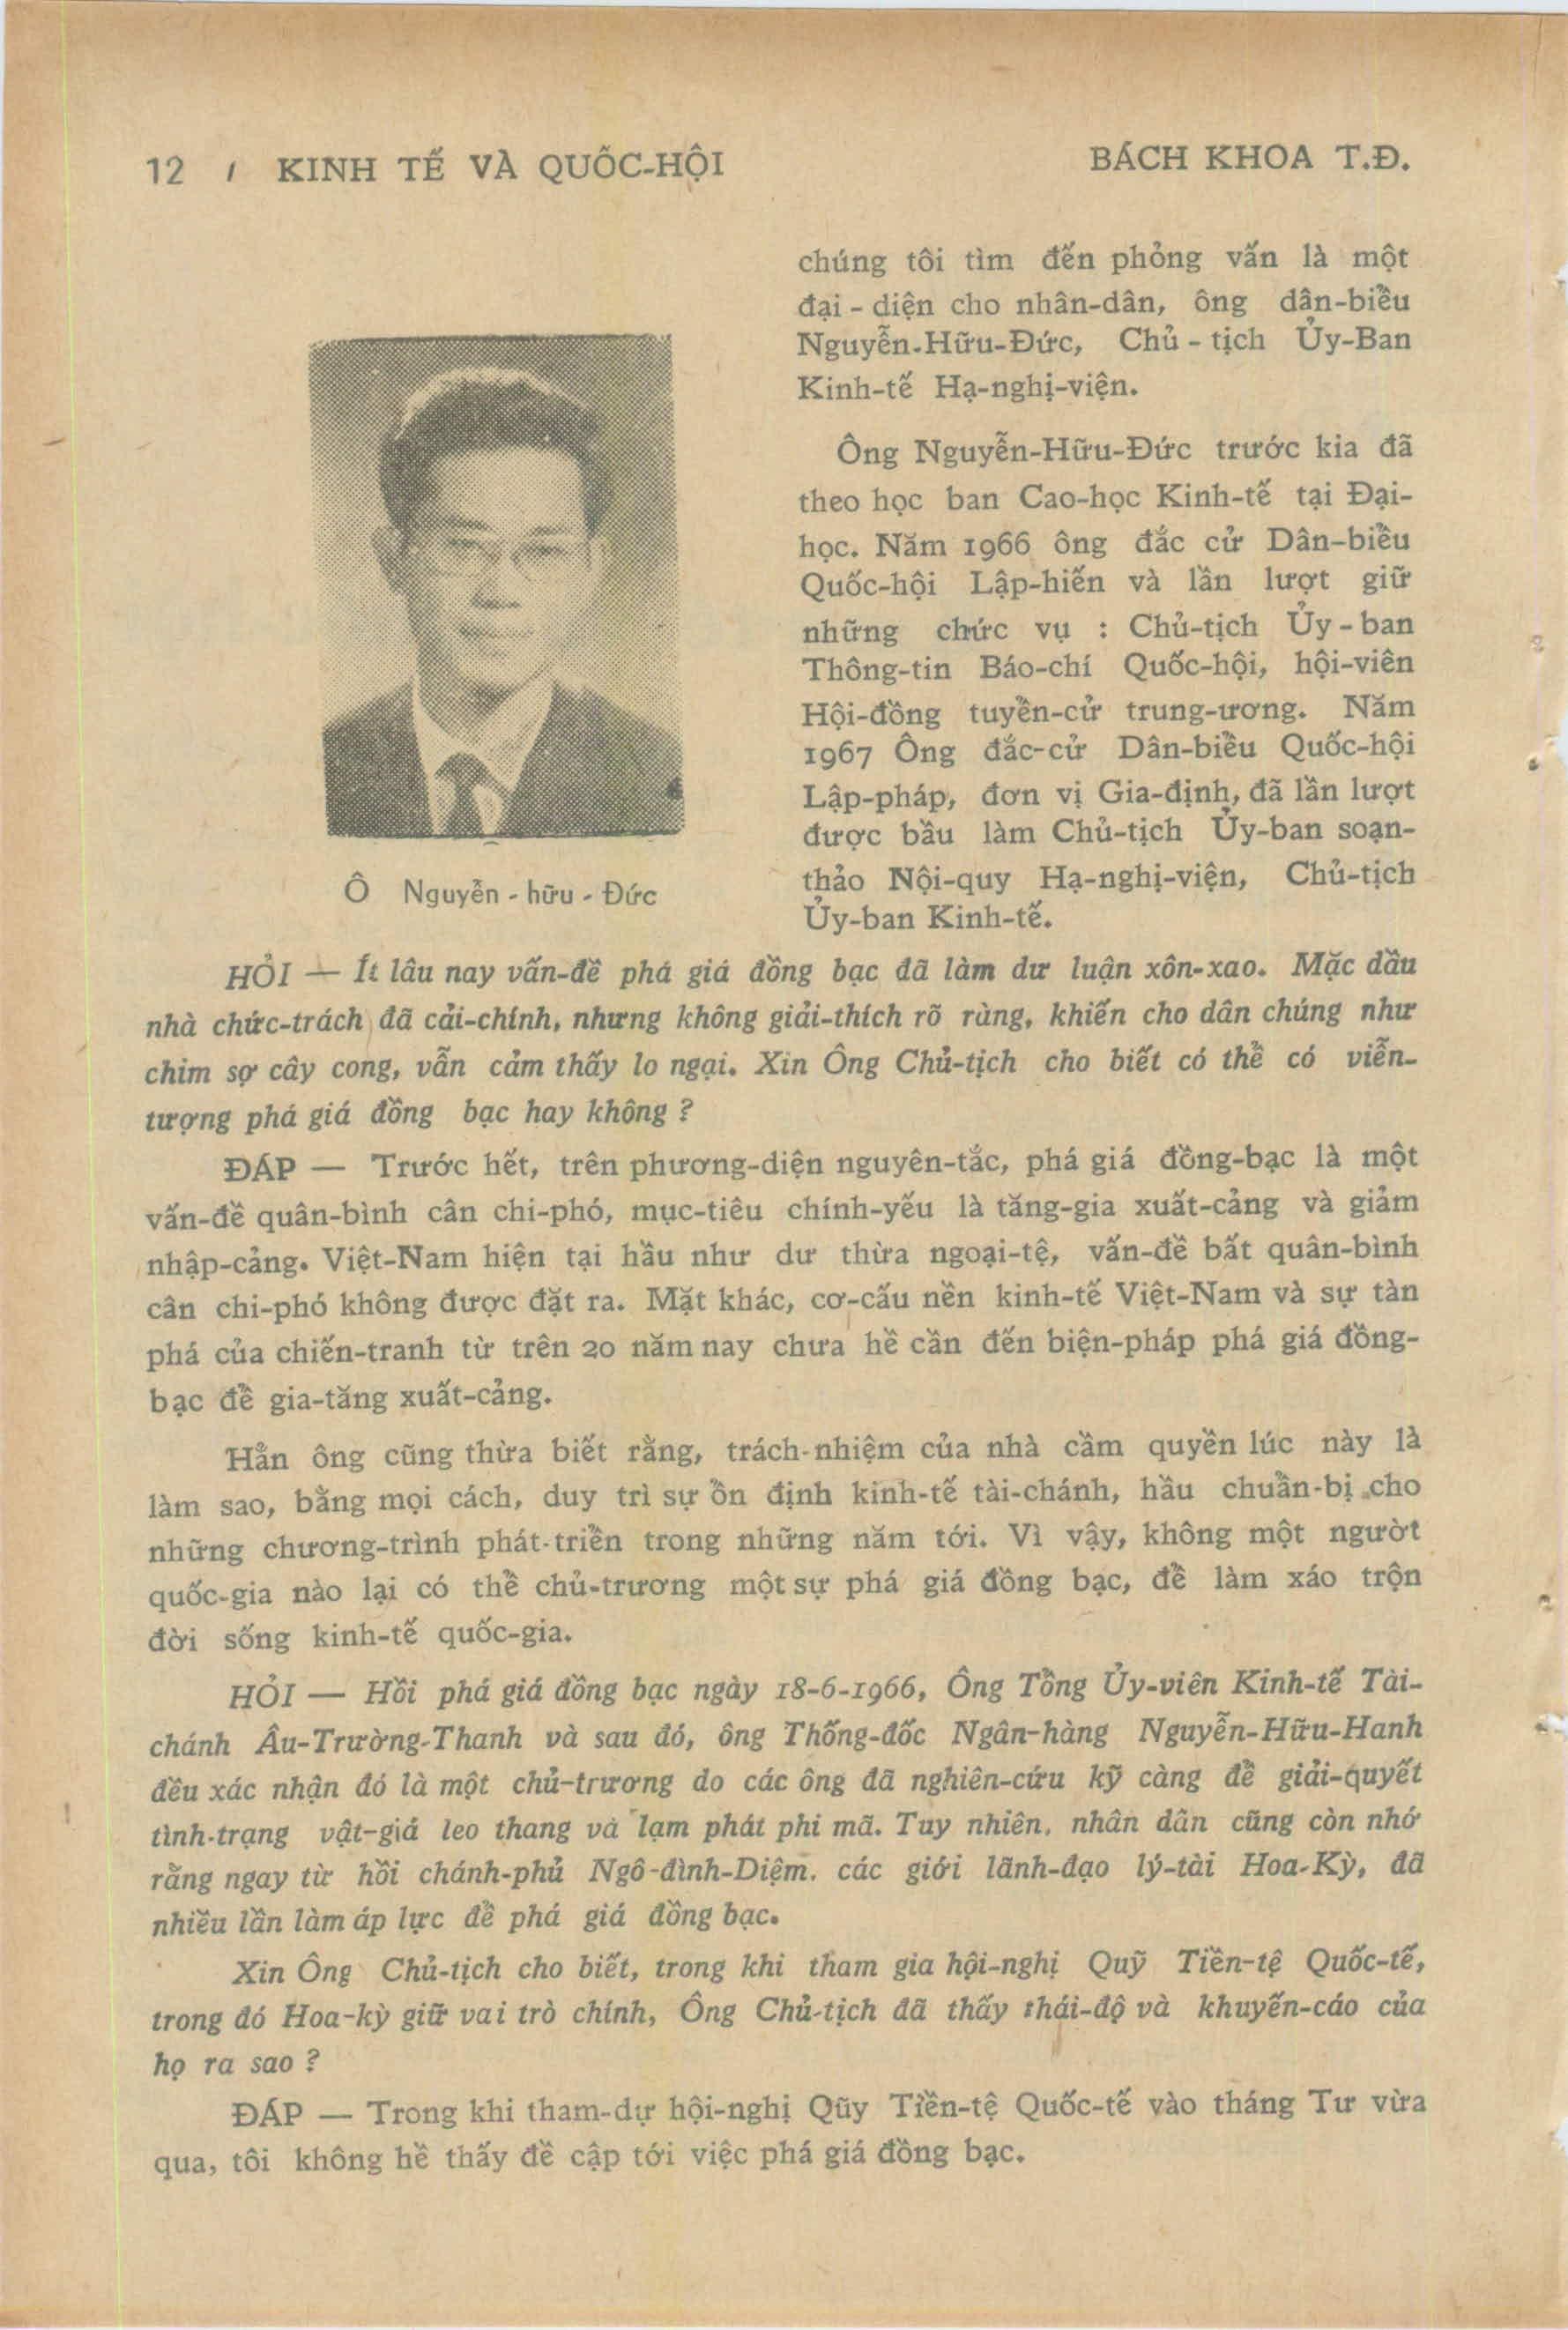 12 / KINH TẾ VÀ QUỐC-HỘI
BÁCH KHOA T.Đ.
chúng tôi tìm đến phỏng vấn là một
đại - diện cho nhân-dân, ông dân-biểu
Nguyễn-Hữu-Đức, Chủ - tịch Ủy-Ban
Kinh-tế Hạ-nghị-viện.
Ông Nguyễn-Hữu-Đức trước kia đã
theo học ban Cao-học Kinh-tế tại Đại-
học. Năm 1966 ông đắc cử Dân-biểu
Quốc-hội Lập-hiến và lần lượt giữ
những chức vụ : Chủ-tịch Ủy - ban
Thông-tin Báo-chí Quốc-hội, hội-viên
Hội-đồng tuyển-cử trung-ương. Năm
1967 Ông đắc-cử Dân-biểu Quốc-hội
Lập-pháp, đơn vị Gia-định, đã lần lượt
được bầu làm Chủ-tịch Ủy-ban soạn-
thảo Nội-quy Hạ-nghị-viện, Chủ-tịch
Ủy-ban Kinh-tế.
Ô Nguyễn - hữu - Đức
HỎI — Ít lâu nay vấn-đề phá giá đồng bạc đã làm dư luận xôn-xao. Mặc dầu
nhà chức-trách đã cải-chính, nhưng không giải-thích rõ ràng, khiến cho dân chúng như
chim sợ cây cong, vẫn cảm thấy lo ngại. Xin Ông Chủ-tịch cho biết có thể có viễn-
tượng phá giá đồng bạc hay không ?
ĐÁP — Trước hết, trên phương-diện nguyên-tắc, phá giá đồng-bạc là một
vấn-đề quân-bình cân chi-phó, mục-tiêu chính-yếu là tăng-gia xuất-cảng và giảm
nhập-cảng. Việt-Nam hiện tại hầu như dư thừa ngoại-tệ, vấn-đề bất quân-bình
cân chi-phó không được đặt ra. Mặt khác, cơ-cấu nền kinh-tế Việt-Nam và sự tàn
phá của chiến-tranh từ trên 20 năm nay chưa hề cần đến biện-pháp phá giá đồng-
bạc để gia-tăng xuất-cảng.
Hẳn ông cũng thừa biết rằng, trách-nhiệm của nhà cầm quyền lúc này là
làm sao, bằng mọi cách, duy trì sự ổn định kinh-tế tài-chánh, hầu chuẩn-bị cho
những chương-trình phát-triển trong những năm tới. Vì vậy, không một ngườt
quốc-gia nào lại có thể chủ-trương một sự phá giá đồng bạc, để làm xáo trộn
đời sống kinh-tế quốc-gia.
HỎI — Hồi phá giá đồng bạc ngày 18-6-1966, Ông Tổng Ủy-viên Kinh-tế Tài-
chánh Âu-Trường-Thanh và sau đó, ông Thống-đốc Ngân-hàng Nguyễn-Hữu-Hanh
đều xác nhận đó là một chủ-trương do các ông đã nghiên-cứu kỹ càng để giải-quyết
tình-trạng vật-giá leo thang và lạm phát phi mã. Tuy nhiên, nhân dân cũng còn nhớ
rằng ngay từ hồi chánh-phủ Ngô-đình-Diệm. các giới lãnh-đạo lý-tài Hoa-Kỳ, đã
nhiều lần làm áp lực để phá giá đồng bạc.
Xin Ông Chủ-tịch cho biết, trong khi tham gia hội-nghị Quỹ Tiền-tệ Quốc-tế,
trong đó Hoa-kỳ giữ vai trò chính, Ông Chủ-tịch đã thấy thái-độ và khuyến-cáo của
họ ra sao ?
ĐÁP — Trong khi tham-dự hội-nghị Qũy Tiền-tệ Quốc-tế vào tháng Tư vừa
qua, tôi không hề thấy đề cập tới việc phá giá đồng bạc.